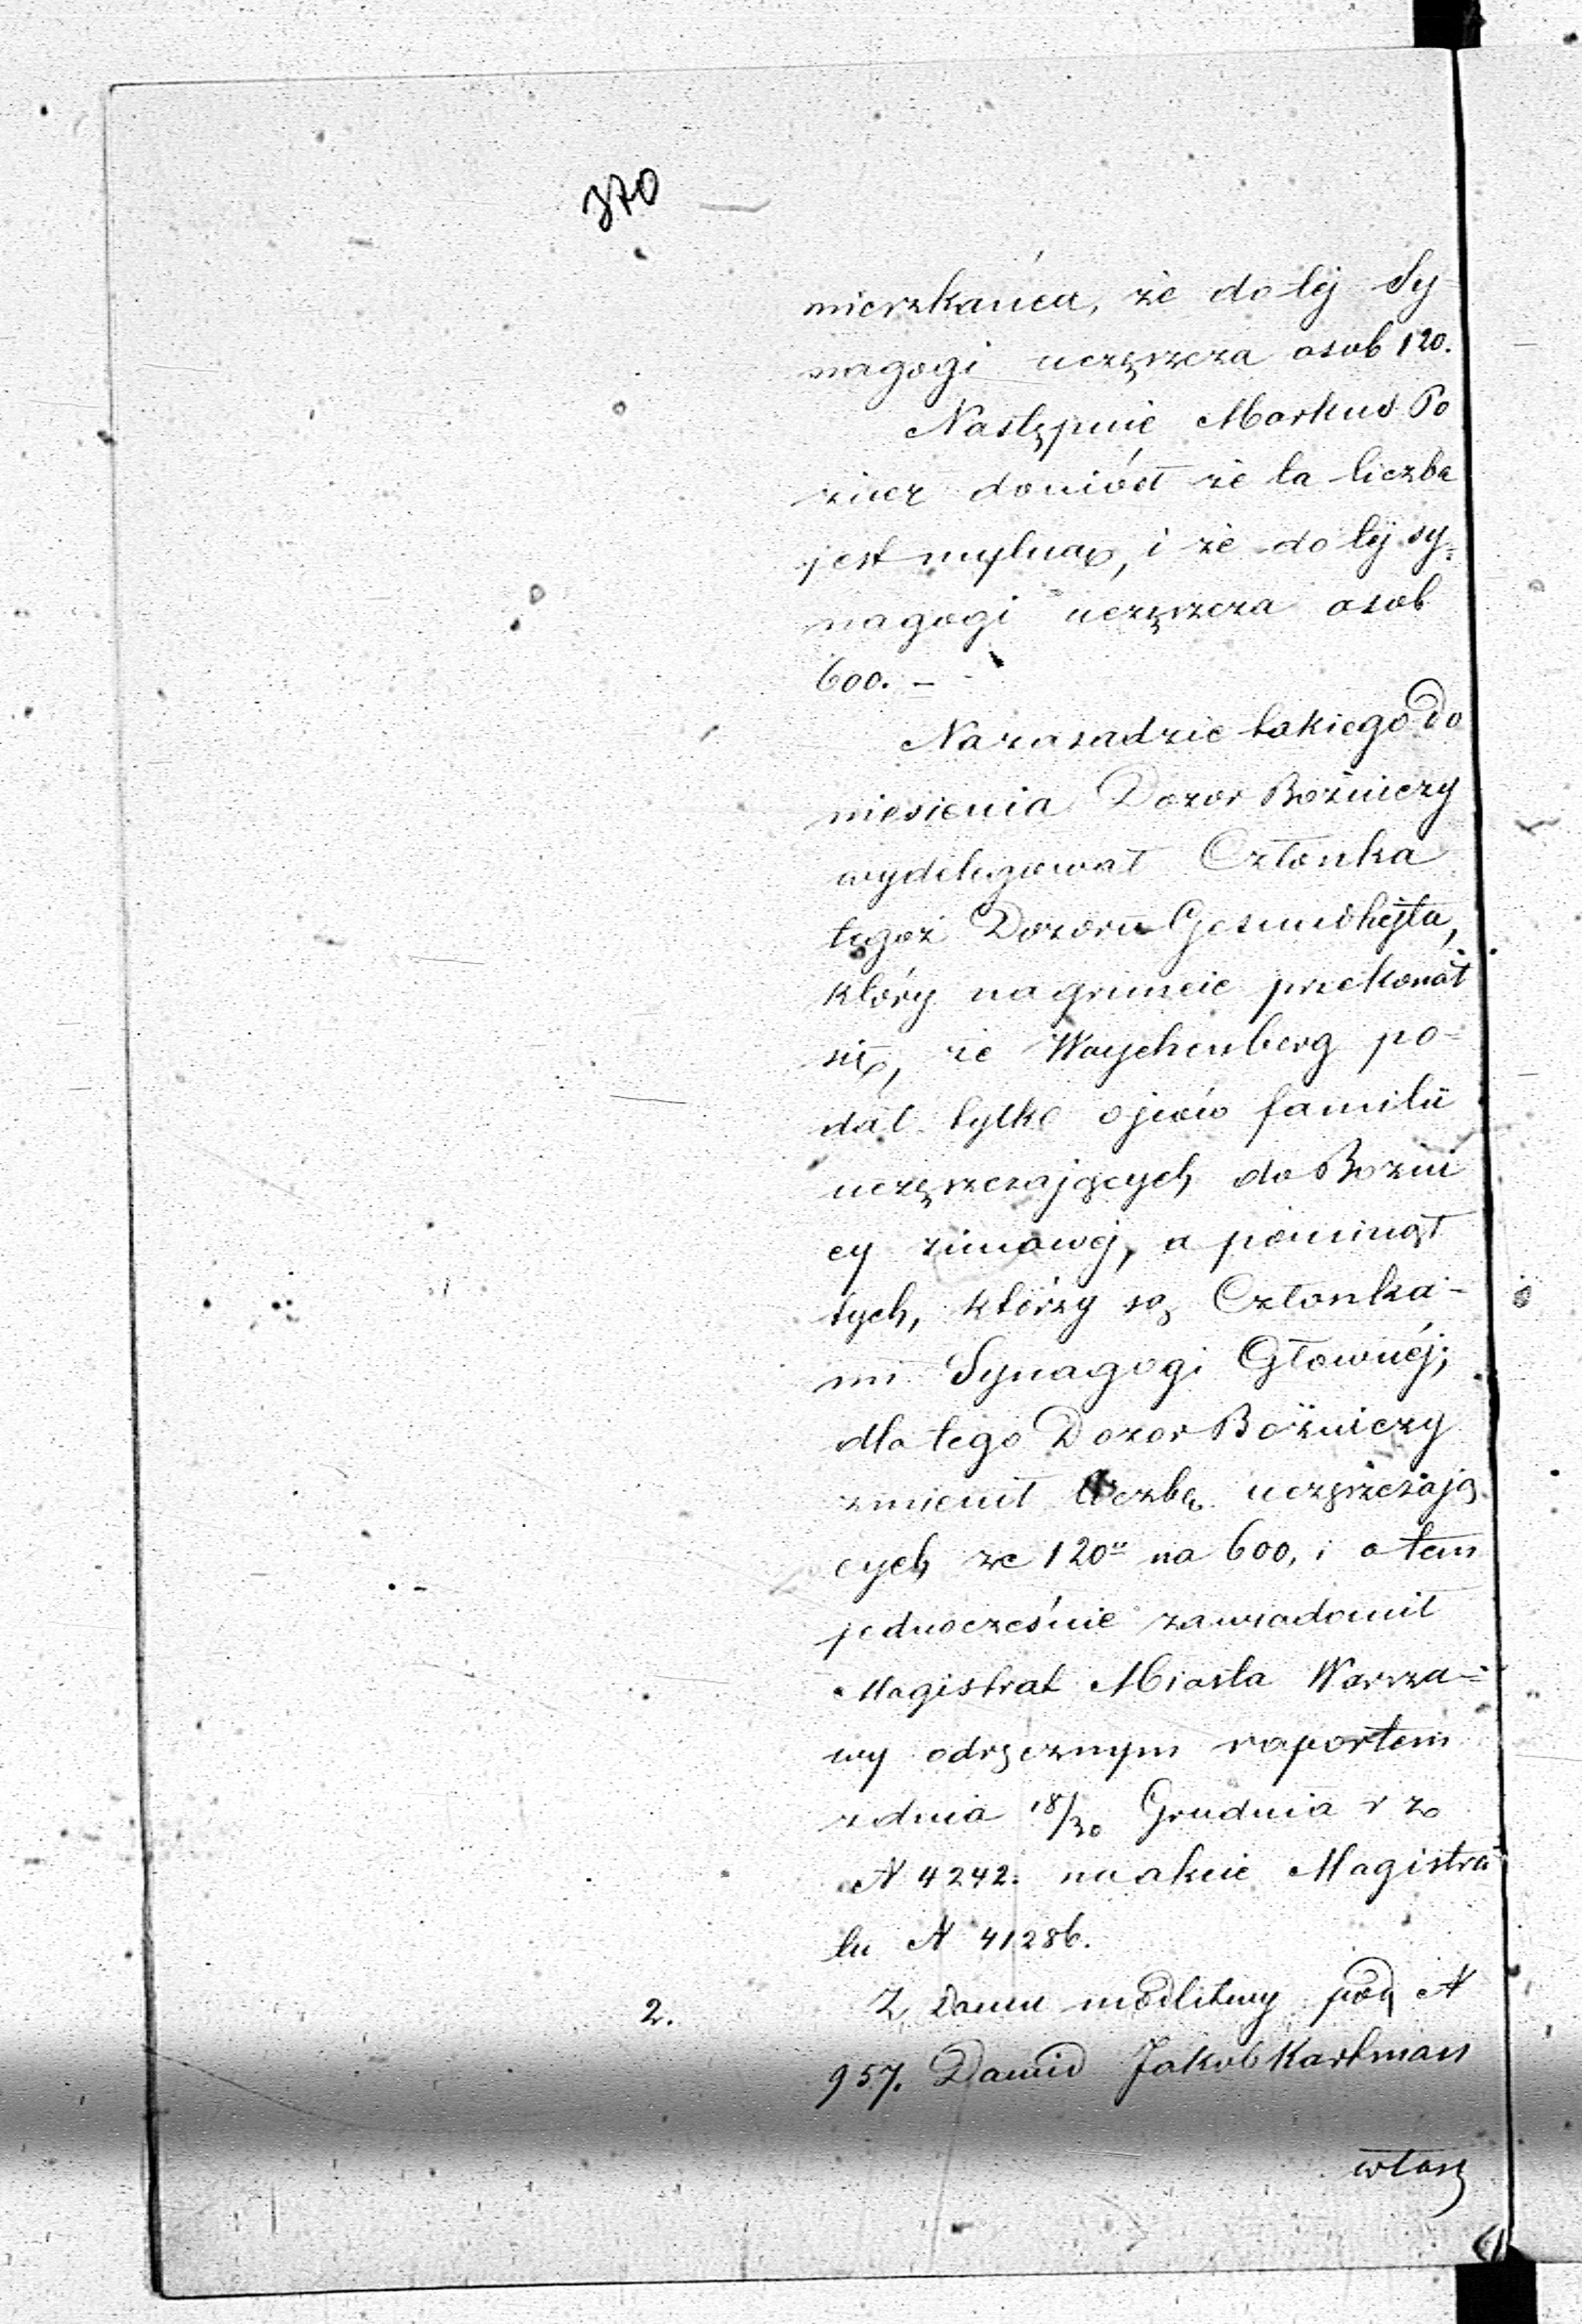 370
mieszkańca, że do téj Sy-
nagogi uczęszcza osob 120.
Następnie Markus Po
zner doniósł że ta liczba
jest mylną, i że do téj sy-
nagogi uczęszcza osob
600. –
Na zasadzie takiego do
niesienia Dozor Bożniczy
wydelegował Członka
tegoż Dozoru Gesundhejta,
który na gruncie przekonał
się, że Waychenberg po-
dał tylko ojców familii
uczęszczających do Bożni
cy zimowej, a pominął
tych, którzy są Członka-
mi Synagogi Głownéj;
dla tego Dozor Bożniczy
zmienił liczbę uczęszczają
cych ze 120u na 600, i o tem
jednocześnie zawiadomił
Magistrat Miasta Warsza-
wy odręcznym raportem
z dnia 18/30 Grudnia r z
N 4242. na akcie Magistra
tu N 41286.
2. Z Domu modlitwy pod N
957. Dawid Jakob Kartman
własz